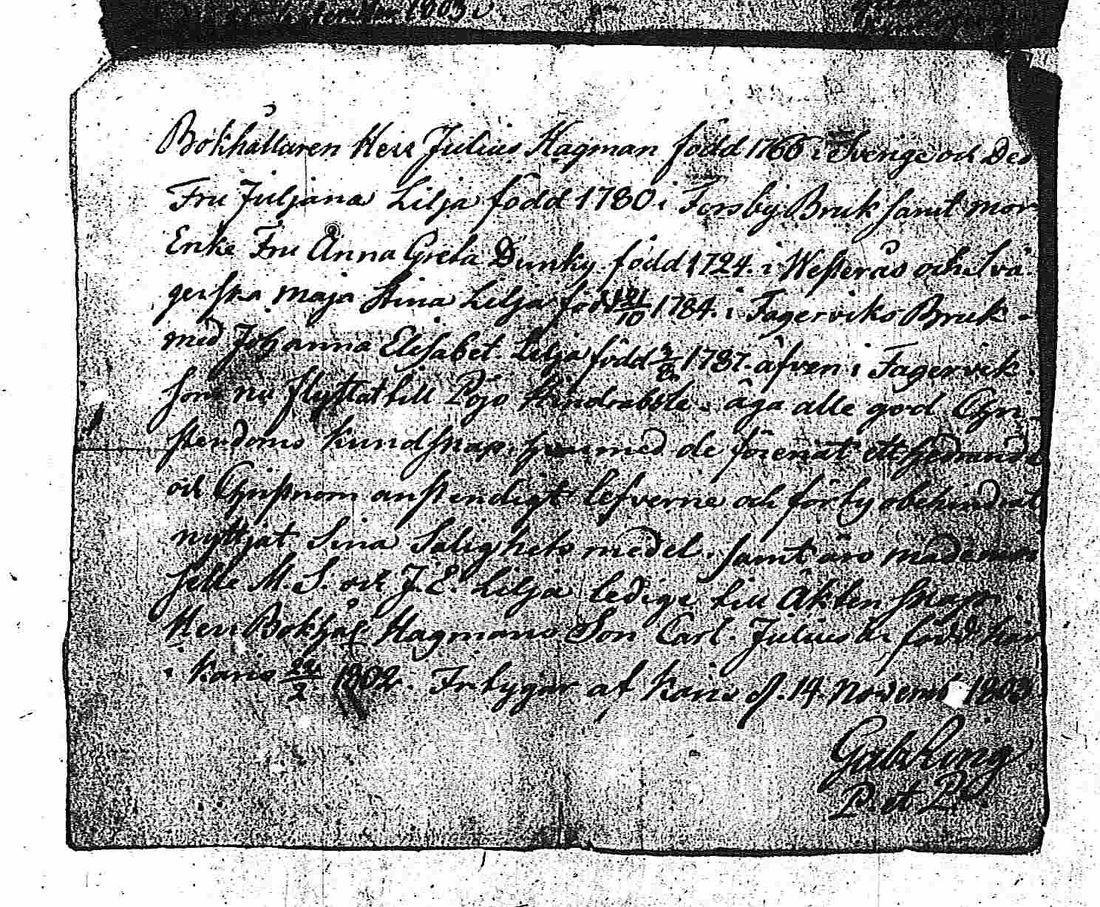 1803
Bokhållaren Herr Julius Hagman född 1765 i Sverige och Des
Fru Juljana Lilja född 1780 i Forsby Bruk samt mor
Enke Fru Anna Greta Dunky född 1724. i Westerås och Svä-
gerska Maja Stina Lilja född 21/10 1784. i Fagerviks Bruk
med Johanna Elisabet Lilja född 1787. äfven i Fagervik
som nu flyttat till Pojo äga alle god Chri-
stendoms kundskap, med de förenat ett
och Christnom anstendigt lefverne och obehindrat
nyttjat sina Salighets medel. samt äro
selle M. S. och J. E. Lilja ledige till Äktenskap.
Herr Bokhål Hagmans Son Carl. Julius är född här
i Karis 1802. Intygar af Karis d. 14 Novemb 1803
Gab Ring
P. et P.